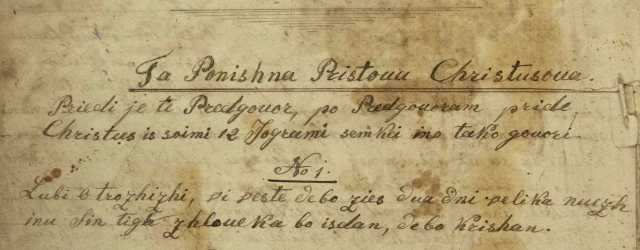 Ta Ponishna Pristouu Christusoua.
Priedi je te Predgouor, po Predgouoram pride
Christus is soimi 12 Jogrami semkei ino tako gouori.
No 1.
Lubi Otrozhizhi, vi veste debo zies dua dni velika nuezh
inu Sin tiga zhloueka bo isdan, debo krishan.